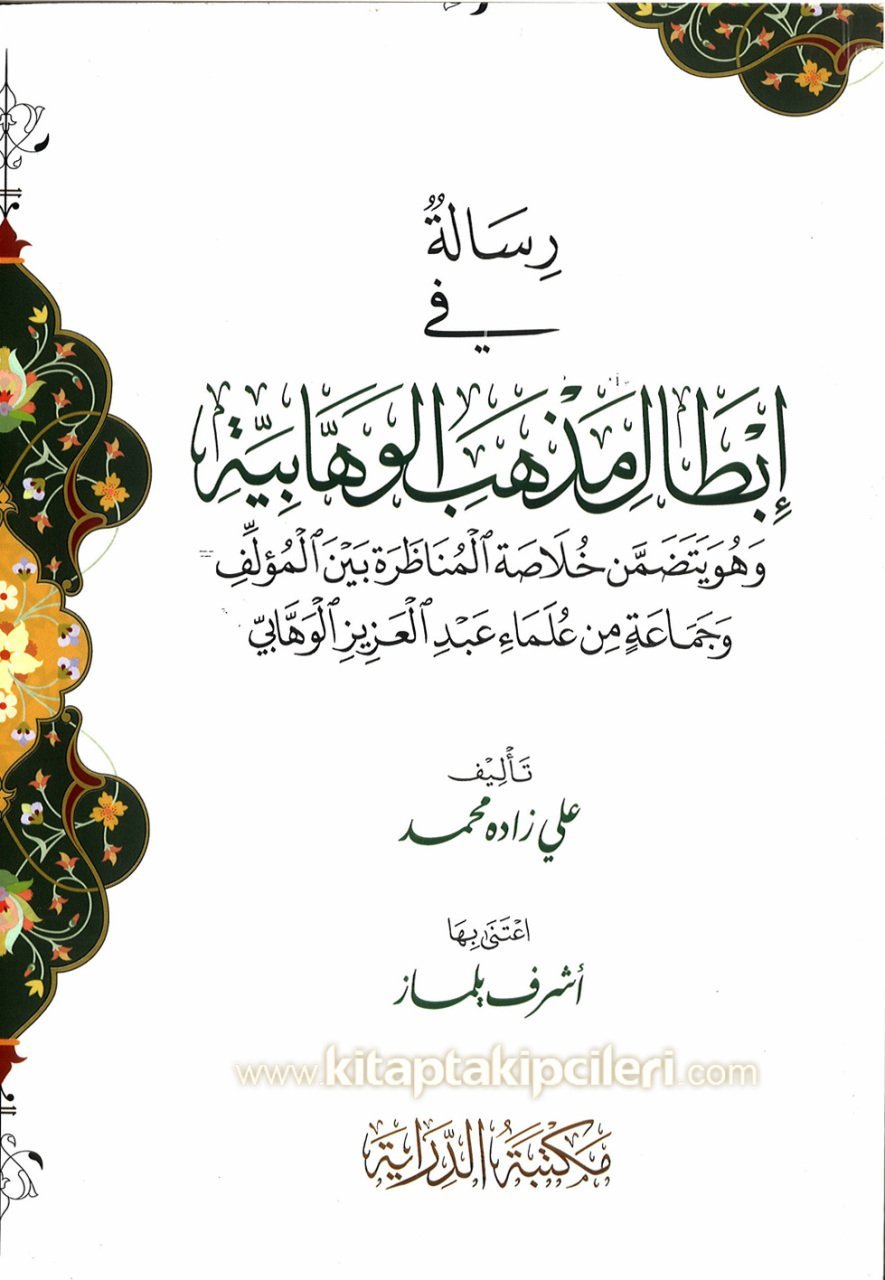 رِسَالَةٌ
فِي
إِبْطَالِ مَذْهَبِ الوَهَّابِيَّةِ
وَهُوَ يَتَضَمَّن خُلَاصَة ٱلْمُنَاظَرَة بَيْنَ ٱلْمُؤَلِّفِ
وَجَمَاعَةٍ مِن عُلَمَاءِ عَبْدِ ٱلْعَزِيزِ ٱلْوَهَّابِيّ
تَأْلِيْف
علي زاده محمد
اعْتَنَى بِهَا
أشرف يلماز
www.kitaptakipcileri.com
مَكْتَبَةُ الدِّرَايَة